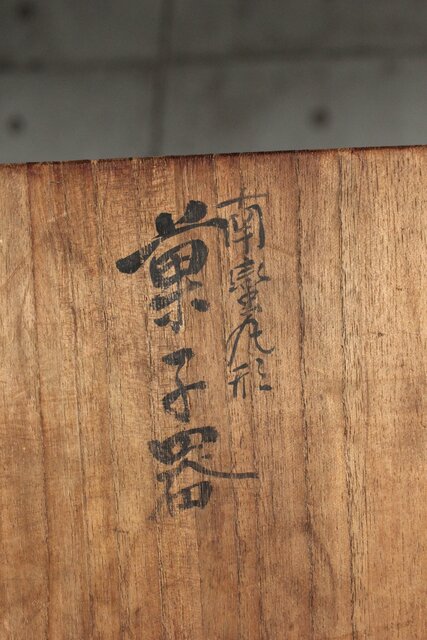 南蛮丸形
菓子器